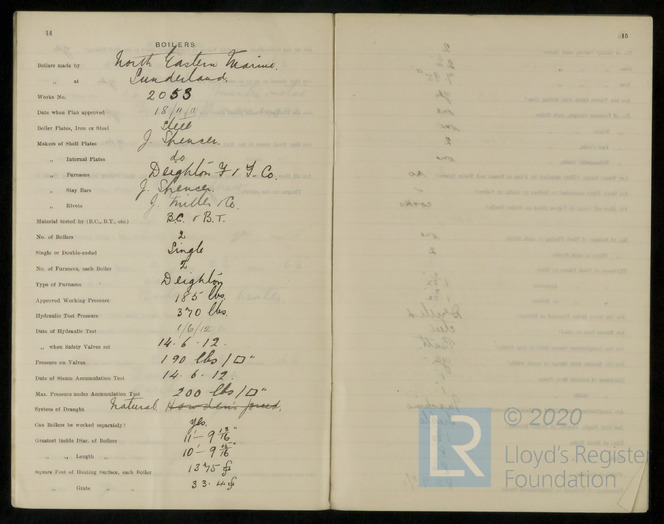 44
BOILERS.
Boilers made by North Eastern Marine.
„ at Sunderland.
Works No. 2053
Date when Plan approved 18/11/11
Boiler Plates, Iron or Steel Steel
Makers of Shell Plates J. Spencer.
„ Internal Plates do
„ Furnaces Deighton F & T. Co.
„ Stay Bars J. Spencer.
„ Rivets J. Miller & Co.
Material tested by (B.C., B.T., etc.) B.C. & B.T.
No. of Boilers 2
Single or Double-ended Single
No. of Furnaces, each Boiler 2
Type of Furnaces Deighton
Approved Working Pressure 185 lbs.
Hydraulic Test Pressure 370 lbs.
Date of Hydraulic Test 1/6/12
„ when Safety Valves set 14.6.12.
Pressure on Valves 190 lbs/□"
Date of Steam Accumulation Test 14.6.12.
Max. Pressure under Accumulation Test 200 lbs/□"
System of Draught Natural Howden's forced.
Can Boilers be worked separately? Yes.
Greatest Inside Diar. of Boilers 11'-9
„ „ Length 10'-9
Square Feet of Heating Surface, each Boiler 1375
„ Grate „ „ 33.4
45
© 2020
LR
Lloyd's Register
Foundation